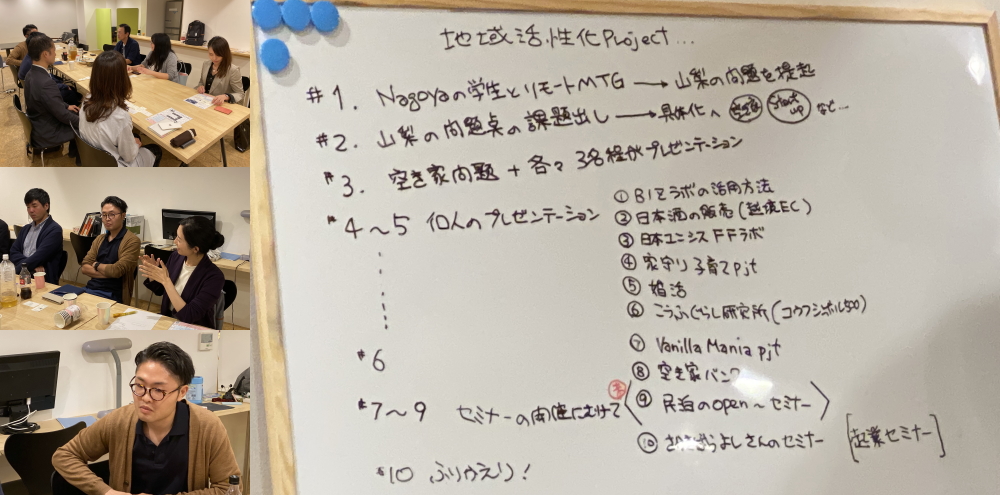 地域活性化Project...
#1. Nagoyaの学生とリモートMTG → 山梨の問題を提起
#2. 山梨の問題点の課題出し → 具体化へ 空き家 Start up など...
#3. 空き家問題 + 各々3名程がプレゼンテーション
#4〜5 10人のプレゼンテーション
① BIZラボの活用方法
② 日本酒の販売(越境EC)
③ 日本ユニシス FFラボ
④ 家守り子育てpjt
⑤ 婚活
⑥ こうふぐらし研究所(コウフシホル500)
⑦ Vanilla Mania pjt
⑧ 空き家バンク
⑨ 民泊のopen〜セミナー
⑩ さかきばらよしさんのセミナー [起業セミナー]
#6
#7〜9 セミナーの開催にむけて
#10 ふりかえり!